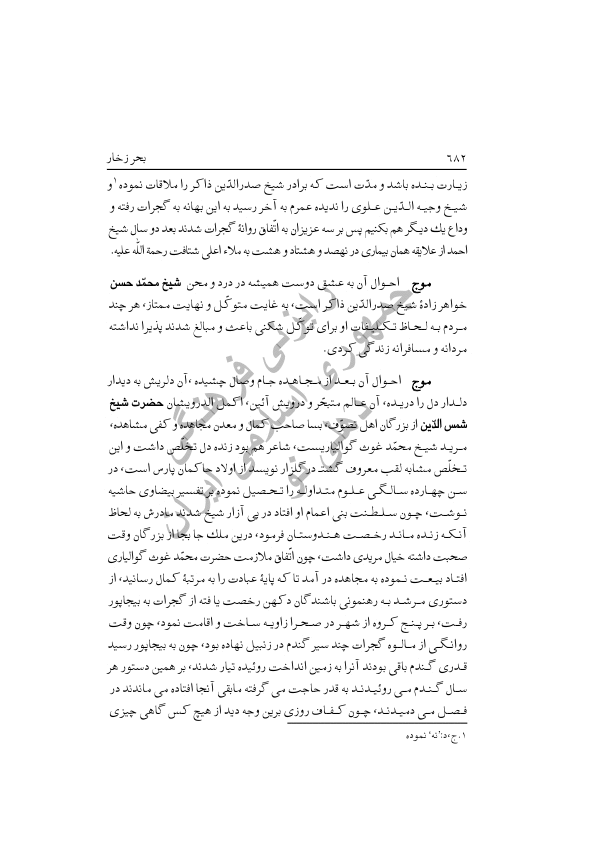 ۶۸۲ بحر زخار
زیارت بنده باشد و مدّت است که برادر شیخ صدرالدّین ذاکر را ملاقات نموده۱ و
شیخ وجیه الدّین علوی را ندیده عمرم به آخر رسید به این بهانه به گجرات رفته و
وداع یك دیگر هم بکنیم پس بر سه عزیزان به اتّفاق روانۀ گجرات شدند بعد دو سال شیخ
احمد از علایقه همان بیماری در نهصد و هشتاد و هشت به ملاء اعلی شتافت رحمة الله علیه.
موج احوال آن به عشق دوست همیشه در درد و محن شیخ محمّد حسن
خواهر زادۀ شیخ صدرالدّین ذاکر است، به غایت متوکّل و نهایت ممتاز، هر چند
مردم به لحاظ تکلیفات او برای توکّل شکنی باعث و مبالغ شدند پذیرا نداشته
مردانه و مسافرانه زندگی کردی.
موج احوال آن بعد از مجاهده جام وصال چشیده ،آن دلریش به دیدار
دلدار دل را دریده، آن عالم متبحّر و درویش آئین، اکمل الدرویشان حضرت شیخ
شمس الدّین از بزرگان اهل تصوّف، بسا صاحب کمال و معدن مجاهده و کفی مشاهده،
مرید شیخ محمّد غوث گوالیاریست، شاعر هم بود زنده دل تخلّص داشت و این
تخلّص مشابه لقب معروف گشت در گلزار نویسد از اولاد حاکمان پارس است، در
سن چهارده سالگی علوم متداوله را تحصیل نموده بر تفسیر بیضاوی حاشیه
نوشت، چون سلطنت بنی اعمام او افتاد در پی آزار شیخ شدند مادرش به لحاظ
آنکه زنده ماند رخصت هندوستان فرمود، درین ملك جا بجا از بزرگان وقت
صحبت داشته خیال مریدی داشت، چون اتّفاق ملازمت حضرت محمّد غوث گوالیاری
افتاد بیعت نموده به مجاهده در آمد تا که پایۀ عبادت را به مرتبۀ کمال رسانید، از
دستوری مرشد به رهنمونی باشندگان دکهن رخصت یا فته از گجرات به بیجاپور
رفت، بر پنج کروه از شهر در صحرا زاویه ساخت و اقامت نمود، چون وقت
روانگی از مالوه گجرات چند سیر گندم در زنبیل نهاده بود، چون به بیجاپور رسید
قدری گندم باقی بودند آنرا به زمین انداخت روئیده تیار شدند، بر همین دستور هر
سال گندم می روئیدند به قدر حاجت می گرفته مابقی آنجا افتاده می ماندند در
فصل می دمیدند، چون کفاف روزی برین وجه دید از هیچ کس گاهی چیزی
۱.ج،د:"نه" نموده